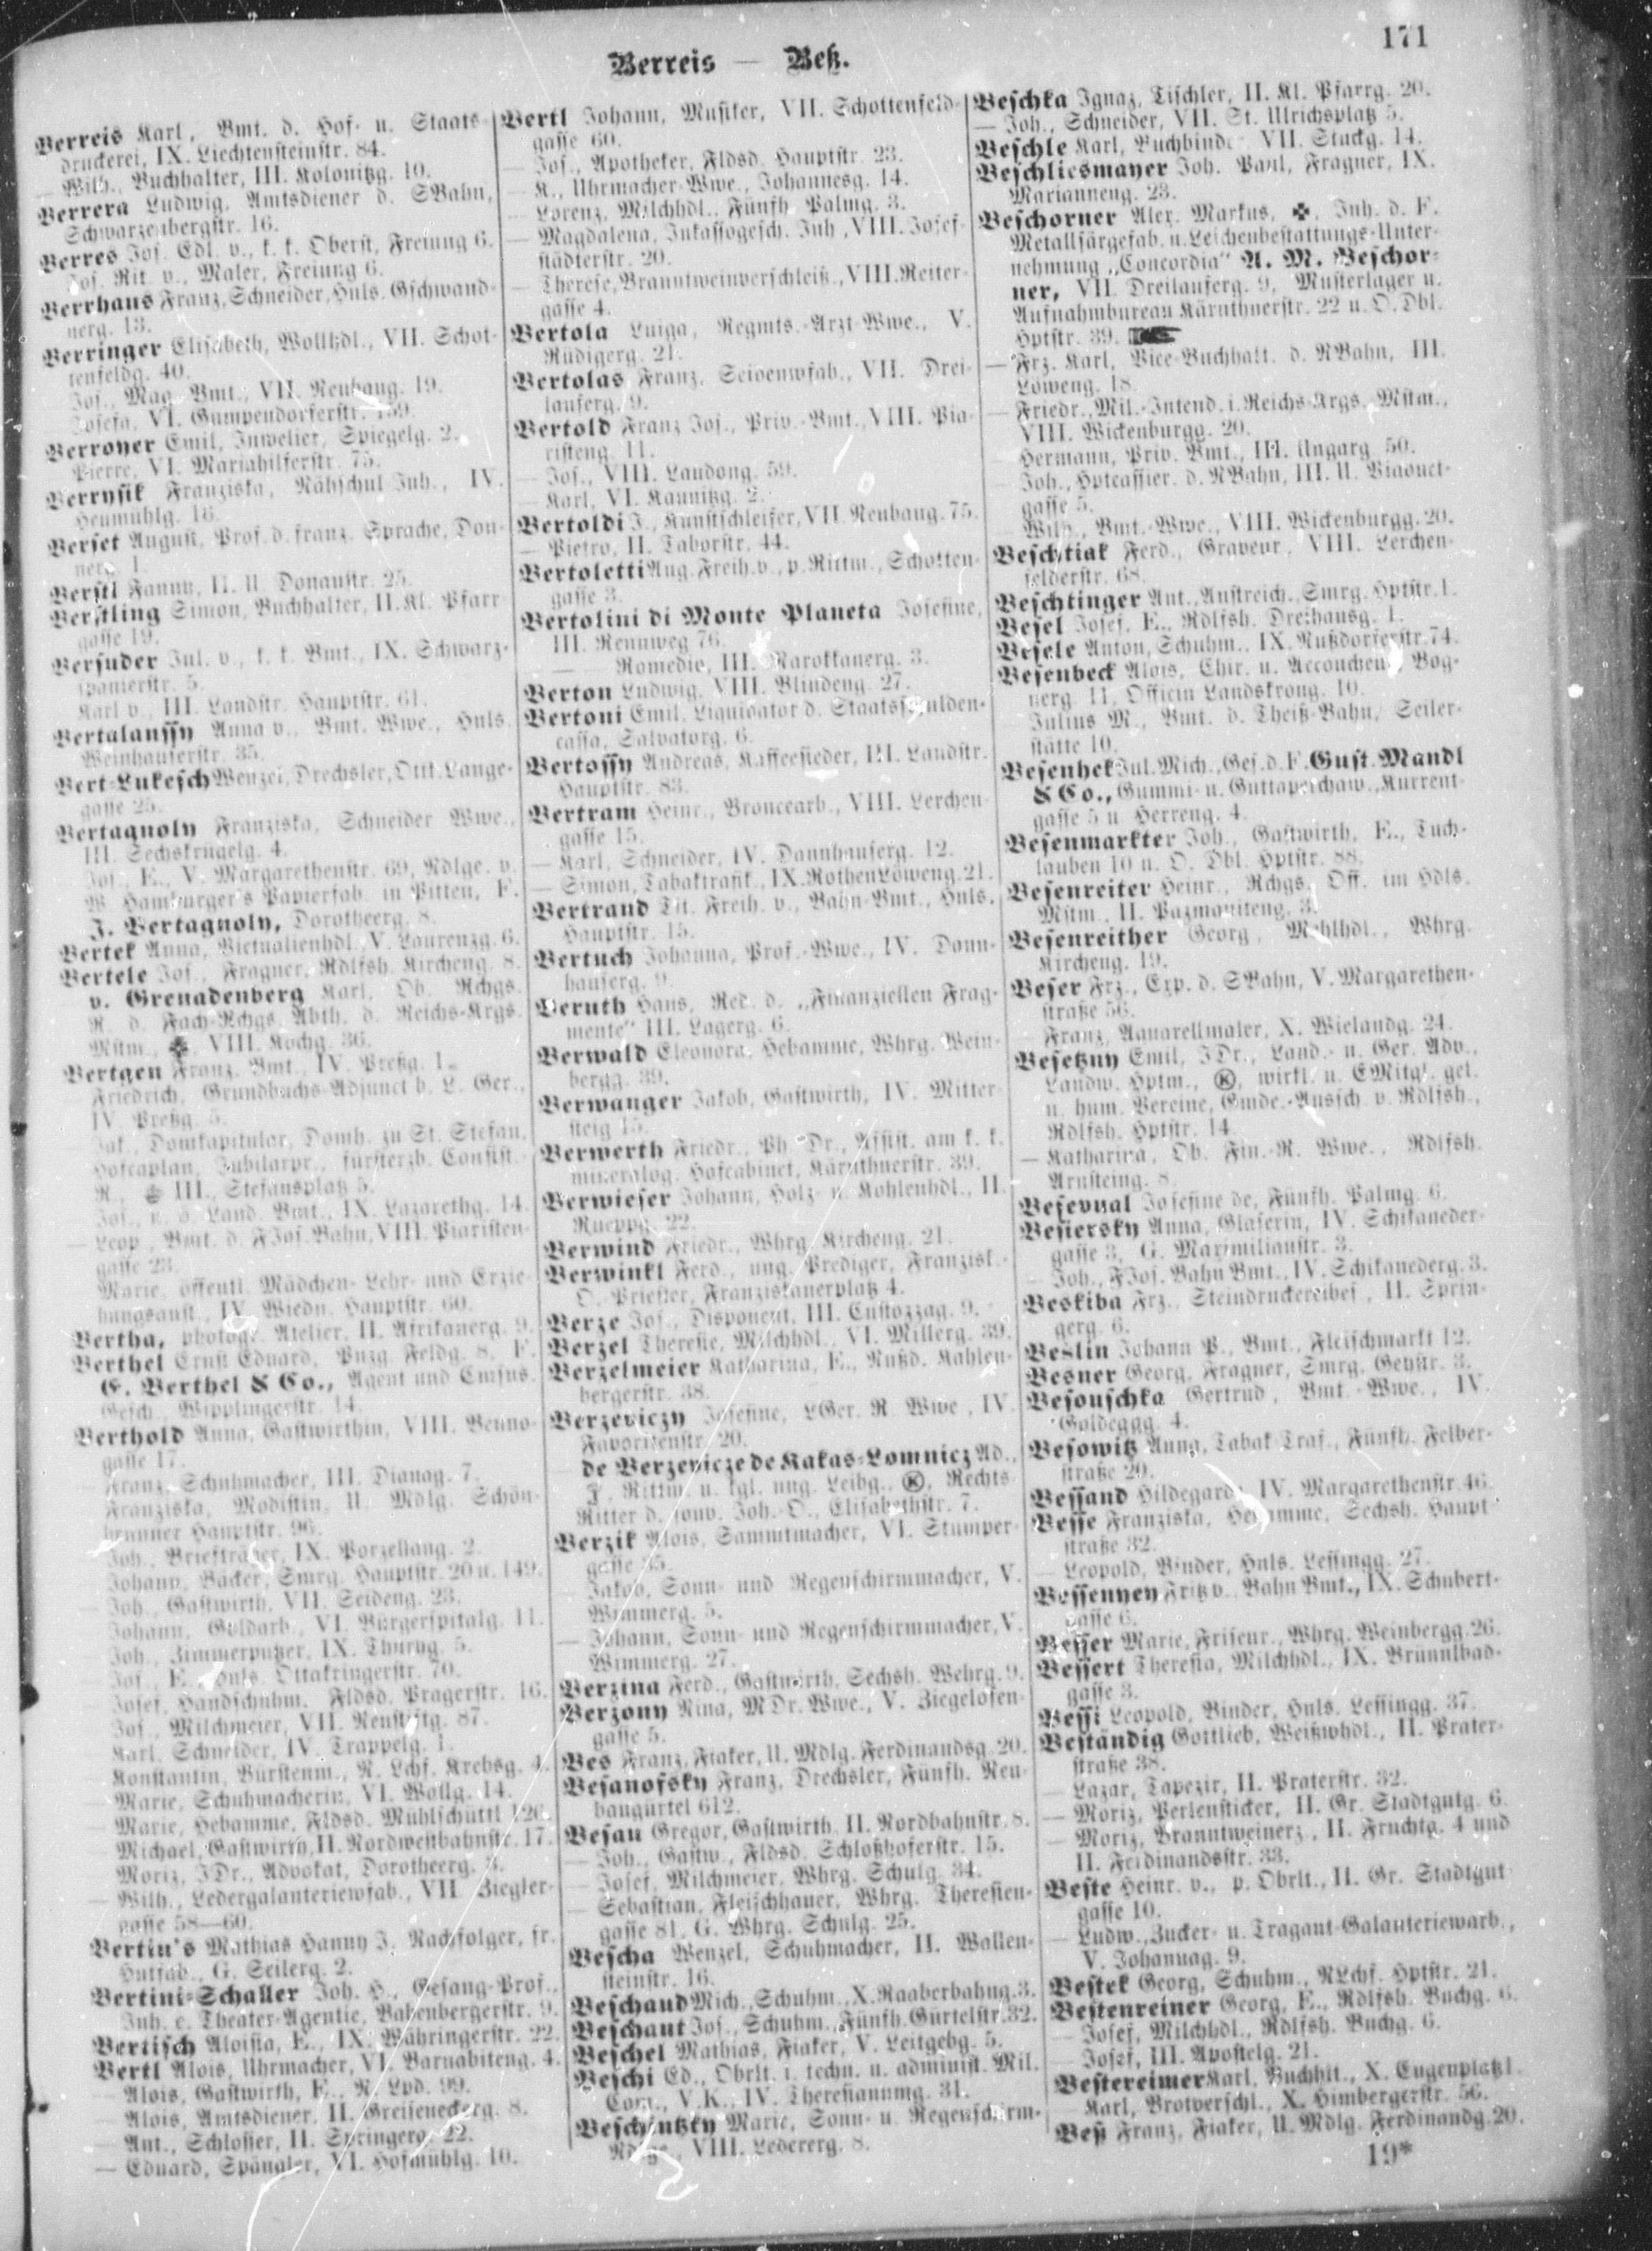 171
Berreis — Beß.
Berreis Karl, Bmt. d. Hof- u. Staats-
druckerei, IX. Liechtensteinstr. 84.
— Wilh., Buchhalter, III. Kolonitzg. 10.
Berrera Ludwig, Amtsdiener d. SBahn,
Schwarzenbergstr. 16.
Berres Jos. Edl. v., k. k. Oberst, Freiung 6.
Jos. Rit. v., Maler, Freiung 6.
Berrhaus Franz, Schneider, Huls. Gschwand-
nerg. 13.
Berringer Elisabeth, Wollhdl., VII. Schot-
tenfeldg. 40.
Jos., Mag. Bmt., VII. Neubaug. 19.
Josefa, VI. Gumpendorferstr. 159.
Berroyer Emil, Juwelier, Spiegelg. 2.
Pierre, VI. Mariahilferstr. 75.
Berrysik Franziska, Nähschul-Inh., IV.
Heumühlg. 18.
Berset August, Prof. d. franz. Sprache, Don-
nerg. 1.
Berstl Fanny, II. U. Donaustr. 25.
Berstling Simon, Buchhalter, II. Kl. Pfarr-
gasse 19.
Bersuder Jul. v., k. k. Bmt., IX. Schwarz-
spanierstr. 5.
Karl v., III. Landstr. Hauptstr. 61.
Bertalanffy Anna v., Bmt. Wwe., Huls.
Weinhauserstr. 35.
Bert-Lukesch Wenzel, Drechsler, Ottk. Lange-
gasse 25.
Bertagnoly Franziska, Schneider Wwe.,
III. Sechskrügelg. 4.
Jos., E., V. Margarethenstr. 69, Ndlge. v.
W. Hamburger's Papierfab. in Pitten, F.
J. Bertagnoly, Dorotheerg. 8.
Bertek Anna, Victualienhdl., V. Laurenzg. 6.
Bertele Jos., Fragner, Rdlfsh. Kircheng. 8.
v. Grenadenberg Karl, Ob. Rchgs.
R. d. Fach-Rchgs. Abth. d. Reichs-Krgs.
Mstm., ✤, VIII. Kochg. 36.
Bertgen Franz, Bmt., IV. Preßg. 1.
Friedrich, Grundbuchs-Adjunct b. L. Ger.,
IV. Preßg. 5.
Jak., Domkapitular, Domh. zu St. Stefan,
Hofcaplan, Jubilarpr., fürsterzb. Consist.-
R., III., Stefansplatz 5.
Jos., n. ö. Land. Bmt., IX. Lazarethg. 14.
— Leop., Bmt. d. FJos. Bahn, VIII. Piaristen-
gasse 23.
Marie, öffentl. Mädchen- Lehr- und Erzie-
hungsanst., IV. Wiedn. Hauptstr. 60.
Bertha, photogr. Atelier, II. Afrikanerg. 9.
Berthel Ernst Eduard, Pnzg. Feldg. 8, F.
E. Berthel & Co., Agent und Cmsns.
Gesch., Wipplingerstr. 14.
Berthold Anna, Gastwirthin, VIII. Benno-
gasse 17.
Franz, Schuhmacher, III. Dianag. 7.
Franziska, Modistin, U. Mdlg. Schön-
brunner Hauptstr. 96.
Joh., Briefträger, IX. Porzellang. 2.
Johann, Bäcker, Smrg. Hauptstr. 20 u. 149.
— Joh., Gastwirth, VII. Seideng. 23.
Johann, Goldarb., VI. Bürgerspitalg. 11.
Joh., Zimmerputzer, IX. Thuryg. 5.
Jos., E., Huls. Ottakringerstr. 70.
Josef, Handschuhm., Fldsd. Pragerstr. 16.
Jos., Milchmeier, VII. Neustiftg. 87.
Karl, Schneider, IV. Trappelg. 1.
Konstantin, Bürstenm., N. Lchf. Krebsg. 4.
Marie, Schuhmacherin, VI. Wallg. 14.
— Marie, Hebamme, Fldsd. Mühlschüttl 126.
Michael, Gastwirth, II. Nordwestbahnstr. 17.
Moriz, JDr., Advokat, Dorotheerg.
— Wilh., Ledergalanteriewfab., VII. Ziegler-
gasse 58—60.
Bertin's Mathias Hanny J. Nachfolger, fr.
Hutfab., G. Seilerg. 2.
Bertini-Schaller Joh. H., Gesang-Prof.,
Inh. e. Theater-Agentie, Babenbergerstr. 9.
Bertisch Aloisia, E., IX. Währingerstr. 22.
Bertl Alois, Uhrmacher, VI. Barnabiteng. 4.
— Alois, Gastwirth, E., N. Lpd. 99.
Alois, Amtsdiener, II. Greiseneckerg. 8.
— Ant., Schlosser, II. Springerg. 22.
— Eduard, Spängler, VI. Hofmühlg. 10.
Bertl Johann, Musiker, VII. Schottenfeld-
gasse 60.
— Jos., Apotheker, Fldsd. Hauptstr. 23.
— K., Uhrmacher-Wwe., Johannesg. 14.
— Lorenz, Milchhdl., Fünfh. Palmg. 3.
— Magdalena, Inkassogesch. Inh., VIII. Josef-
städterstr. 20.
— Therese, Branntweinverschleiß., VIII. Reiter-
gasse 4.
Bertola Luiga, Regmts.-Arzt-Wwe., V.
Rüdigerg. 21.
Bertolas Franz, Seidenwfab., VII. Drei-
lauferg. 9.
Bertold Franz Jos., Priv.-Bmt., VIII. Pia-
risteng. 11.
— Jos., VIII. Laudong. 59.
— Karl, VI. Kaunitzg. 2.
Bertoldi J., Kunstschleifer, VII. Neubaug. 75.
— Pietro, II. Taborstr. 44.
Bertoletti Aug. Freih. v., p. Rittm., Schotten-
gasse 3.
Bertolini di Monte Planeta Josefine,
III. Rennweg 76.
— — Romedio, III. Marokkanerg. 3.
Berton Ludwig, VIII. Blindeng. 27.
Bertoni Emil, Liquidator d. Staatsschulden-
cassa, Salvatorg. 6.
Bertossy Andreas, Kaffeesieder, III. Landstr.
Hauptstr. 83.
Bertram Heinr., Broncearb., VIII. Lerchen-
gasse 15.
— Karl, Schneider, IV. Dannhauserg. 12.
— Simon, Tabaktrafik., IX. RothenLöweng. 21.
Bertrand Tit. Freih. v., Bahn-Bmt., Huls.
Hauptstr. 15.
Bertuch Johanna, Prof.-Wwe., IV. Dann-
hauserg. 9.
Beruth Hans, Red. d. „Finanziellen Frag-
mente" III. Lagerg. 6.
Berwald Eleonora, Hebamme, Whrg. Wein-
bergg. 39.
Berwanger Jakob, Gastwirth, IV. Mitter-
steig 15.
Berwerth Friedr., Ph. Dr., Assist. am k. k.
mineralog. Hofcabinet, Kärnthnerstr. 39.
Berwieser Johann, Holz- u. Kohlenhdl., II.
Rueppg. 22.
Berwind Friedr., Whrg. Kircheng. 21.
Berwinkl Ferd., ung. Prediger, Franzisk.-
O.-Priester, Franziskanerplatz 4.
Berze Jos., Disponent, III. Custozzag. 9.
Berzel Theresie, Milchhdl., VI. Millerg. 39.
Berzelmeier Katharina, E., Nußd. Kahlen-
bergerstr. 38.
Berzeviczy Josefine, LGer. R. Wwe., IV.
Favoritenstr. 20.
de Berzevicze de Kakas-Lomnicz Ad.,
F. Rittm. u. kgl. ung. Leibg., Ⓚ, Rechts-
Ritter d. souv. Joh.-O., Elisabethstr. 7.
Berzik Alois, Sammtmacher, VI. Stumper-
gasse 35.
— Jakob, Sonn- und Regenschirmmacher, V.
Wimmerg. 5.
— Johann, Sonn- und Regenschirmmacher, V.
Wimmerg. 27.
Berzina Ferd., Gastwirth, Sechsh. Wehrg. 9.
Berzony Nina, MDr. Wwe., V. Ziegelofen-
gasse 5.
Bes Franz, Fiaker, U. Mdlg. Ferdinandsg. 20.
Besanofsky Franz, Drechsler, Fünfh. Neu-
baugürtel 612.
Besau Gregor, Gastwirth, II. Nordbahnstr. 8.
— Joh., Gastw., Fldsd. Schloßhoferstr. 15.
— Josef, Milchmeier, Whrg. Schulg. 34.
— Sebastian, Fleischhauer, Whrg. Theresien-
gasse 81, G. Whrg. Schulg. 25.
Bescha Wenzel, Schuhmacher, II. Wallen-
steinstr. 16.
Beschaud Mich., Schuhm., X. Raaberbahng. 3.
Beschaut Jos., Schuhm., Fünfh. Gürtelstr. 32.
Beschel Mathias, Fiaker, V. Leitgebg. 5.
Beschi Ed., Obrlt. i. techn. u. administ. Mil.
Com., V.K., IV. Theresianumg. 31.
Beschinsky Marie, Sonn- u. Regenschirm-
VIII. Ledererg. 8.
Beschka Ignaz, Tischler, II. Kl. Pfarrg. 20.
— Joh., Schneider, VII. St. Ulrichsplatz 5.
Beschle Karl, Buchbinder, VII. Stuckg. 14.
Beschliesmayer Joh. Paul, Fragner, IX.
Marianneng. 23.
Beschorner Alex. Markus, ✤, Inh. d. F.
Metallsärgefab. u. Leichenbestattungs-Unter-
nehmung „Concordia" A. M. Beschor-
ner, VII. Dreilauferg. 9, Musterlager u.
Aufnahmbureau Kärnthnerstr. 22 u. O. Dbl.
Hptstr. 39.
— Frz. Karl, Vice-Buchhalt. d. NBahn, III.
Löweng. 18.
— Friedr., Mil.-Intend. i. Reichs-Krgs. Mstm.,
VIII. Wickenburgg. 20.
Hermann, Priv. Bmt., III. Ungarg. 50.
— Joh., Hptcassier. d. NBahn, III. U. Viaduct-
gasse 5.
Wilh., Bmt.-Wwe., VIII. Wickenburgg. 20.
Beschtiak Ferd., Graveur, VIII. Lerchen-
felderstr. 68.
Beschtinger Ant., Anstreich., Smrg. Hptstr. 1.
Besel Josef, E., Rdlfsh. Dreihausg. 1.
Besele Anton, Schuhm., IX. Nußdorferstr. 74.
Besenbeck Alois, Chir. u. Accoucheur, Bog-
nerg. 11, Officin Landskrong. 10.
— Julius M., Bmt. d. Theiß-Bahn, Seiler-
stätte 10.
Besenhek Jul. Mich., Ges. d. F. Gust. Mandl
& Co., Gummi- u. Guttaperchaw., Kurrent-
gasse 5 u. Herreng. 4.
Besenmarkter Joh., Gastwirth, E., Tuch-
lauben 10 u. O. Dbl. Hptstr. 88.
Besenreiter Heinr., Rchgs. Off. im Hdls.
Mstm., II. Pazmaniteng. 3.
Besenreither Georg, Mehlhdl., Whrg.
Kircheng. 19.
Beser Frz., Exp. d. SBahn, V. Margarethen-
straße 56.
— Franz, Aquarellmaler, X. Wielandg. 24.
Besetzny Emil, JDr., Land.- u. Ger. Adv.,
Landw. Hptm., Ⓚ, wirkl. u. EMitgl. gel.
u. hum. Vereine, Gmde.-Aussch. v. Rdlfsh.,
Rdlfsh. Hptstr. 14.
— Katharina, Ob. Fin.-R. Wwe., Rdlfsh.
Arnsteing. 8.
Besevual Josefine de, Fünfh. Palmg. 6.
Besiersky Anna, Glaserin, IV. Schikaneder-
gasse 3, G. Maximilianstr. 3.
— Joh., FJos. Bahn Bmt., IV. Schikanederg. 3.
Beskiba Frz., Steindruckereibes., II. Sprin-
gerg. 6.
Beslin Johann P., Bmt., Fleischmarkt 12.
Besner Georg, Fragner, Smrg. Geystr. 3.
Besouschka Gertrud, Bmt.-Wwe., IV.
Goldeggg. 4.
Besowitz Anna, Tabak Traf., Fünfh. Felber-
straße 20.
Bessand Hildegard, IV. Margarethenstr. 46.
Besse Franziska, Hebamme, Sechsh. Haupt-
straße 32.
— Leopold, Binder, Huls. Lessingg. 27.
Bessenyey Fritz v., Bahn Bmt., IX. Schubert-
gasse 6.
Besser Marie, Friseur., Whrg. Weinbergg. 26.
Bessert Theresia, Milchhdl., IX. Brünnlbad-
gasse 3.
Bessi Leopold, Binder, Huls. Lessingg. 37.
Beständig Gottlieb, Weißwhdl., II. Prater-
straße 38.
— Lazar, Tapezir., II. Praterstr. 32.
— Moriz, Perlensticker, II. Gr. Stadtgutg. 6.
— Moriz, Branntweinerz., II. Fruchtg. 4 und
II. Ferdinandsstr. 33.
Beste Heinr. v., p. Obrlt., II. Gr. Stadtgut-
gasse 10.
— Ludw., Zucker- u. Tragant-Galanteriewarb.,
V. Johannag. 9.
Bestek Georg, Schuhm., NLchf. Hptstr. 21.
Bestenreiner Georg, E., Rdlfsh. Buchg. 6.
— Josef, Milchhdl., Rdlfsh. Buchg. 6.
— Josef, III. Apostelg. 21.
Bestereimer Karl, Buchhlt., X. Eugenplatz 1.
— Karl, Brotverschl., X. Himbergerstr. 56.
Beß Franz, Fiaker, U. Mdlg. Ferdinandg. 20.
19*